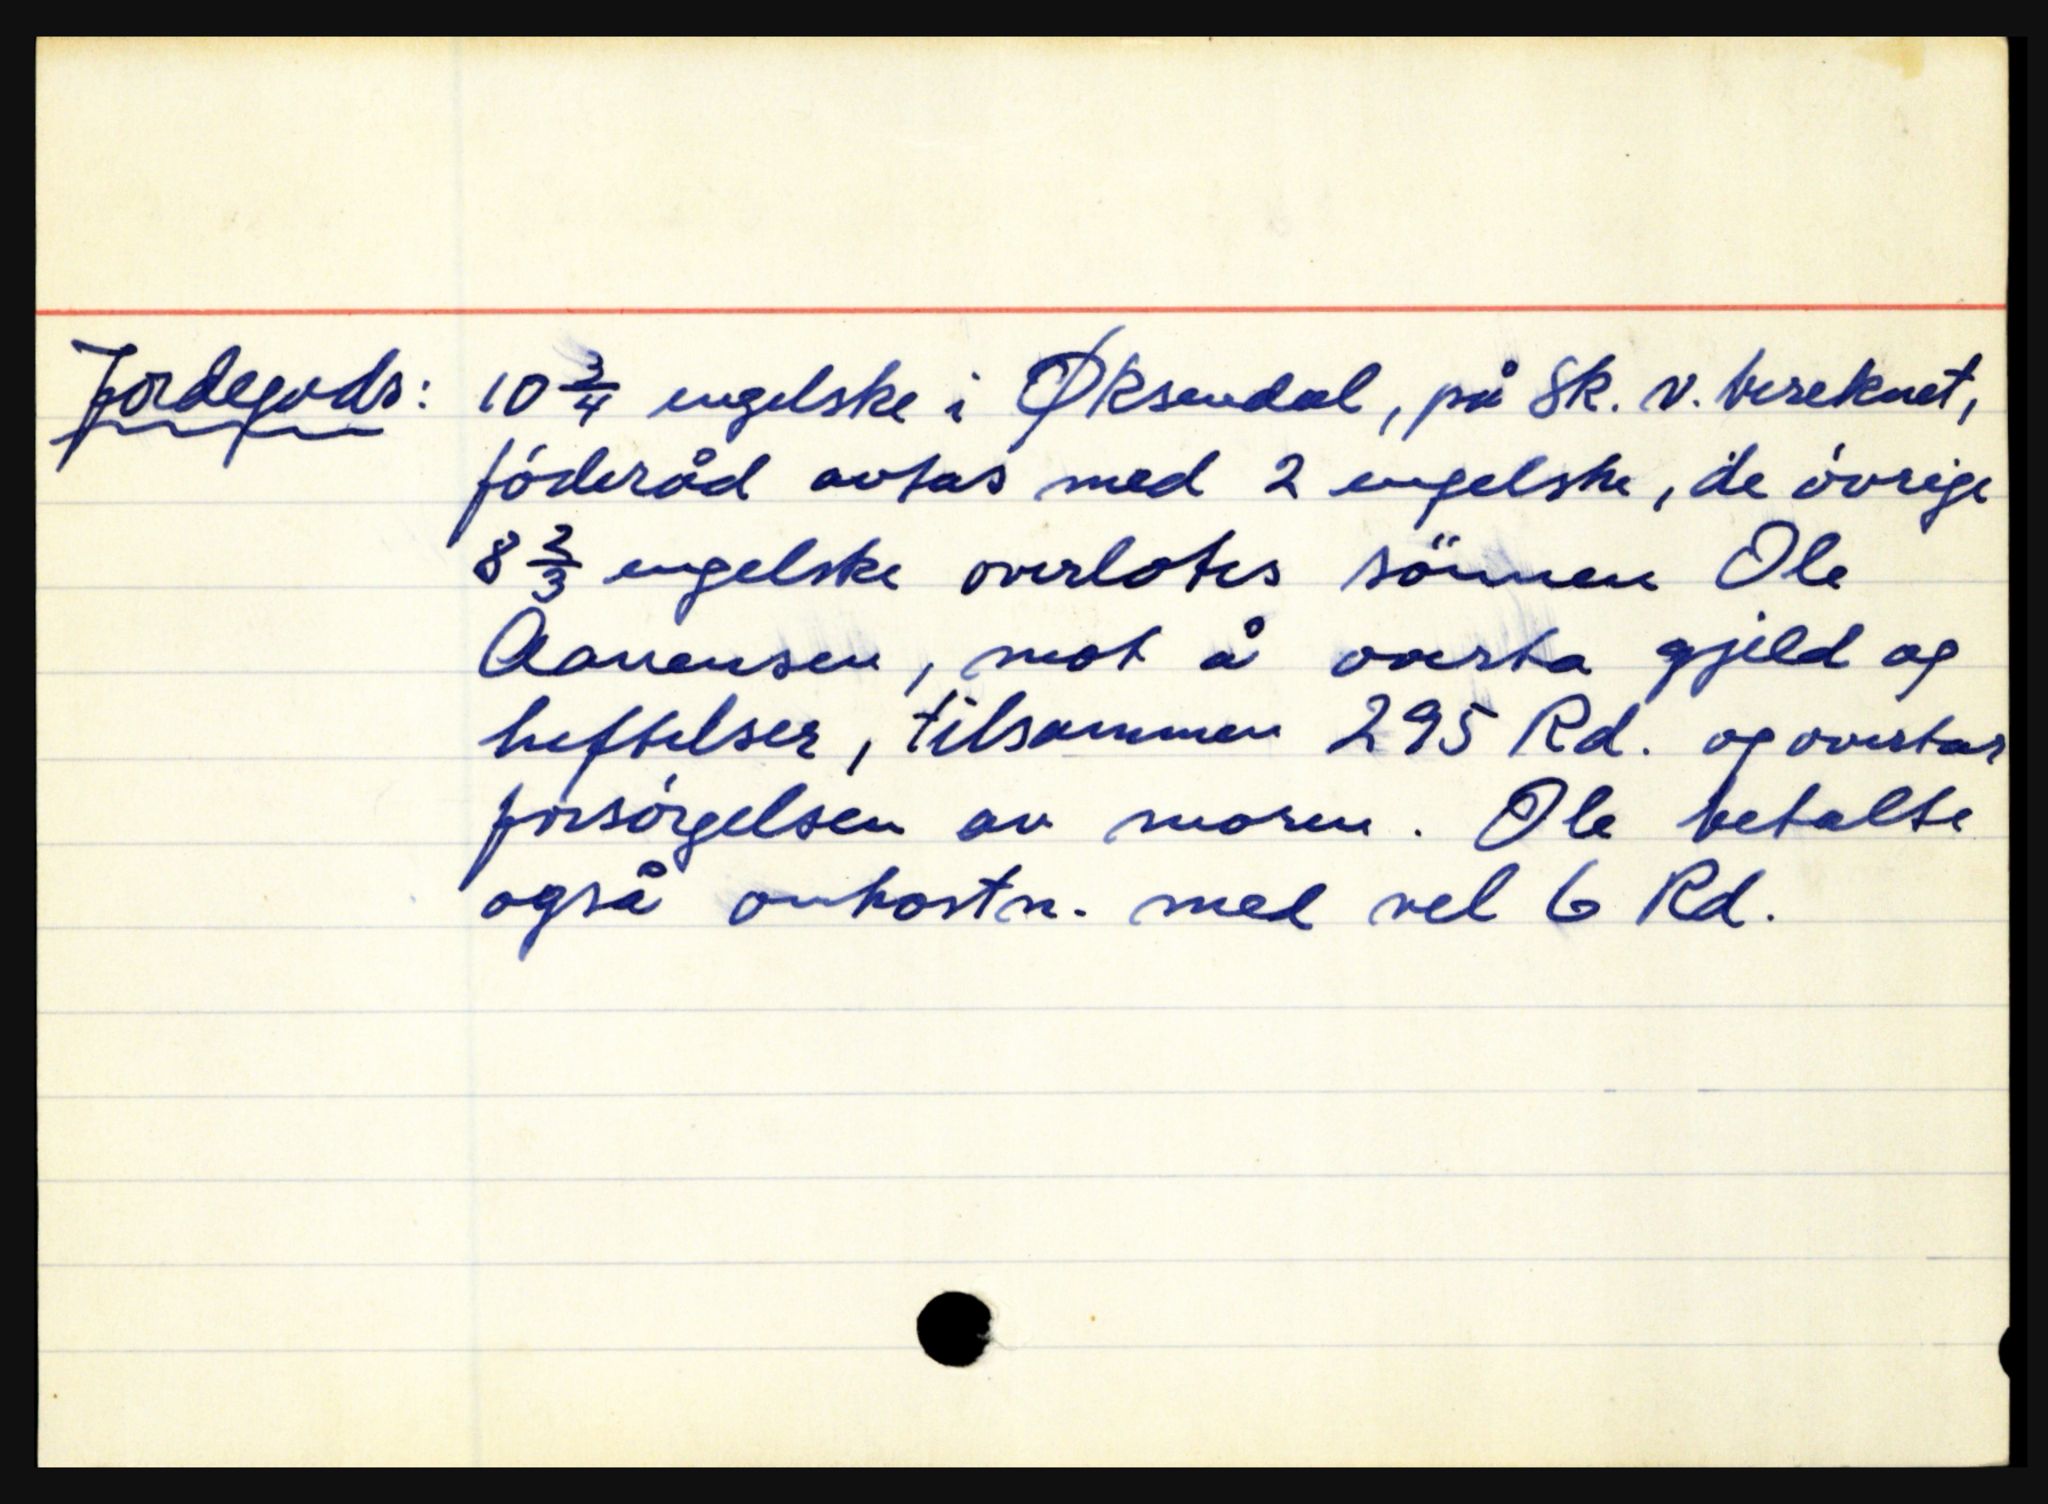 Jordegods: 10 3/4 engelske i Øksendal, på Sk. v. bereknet,
föderåd avtas med 2 engelske, de övrige
8 2/3 engelske overlates sönnen Ole
Aanensen, mot å overta gjeld og
heftelser, tilsammen 295 Rd. og overtar
forsörgelsen av moren. Ole betalte
også omkostn. med vel 6 Rd.